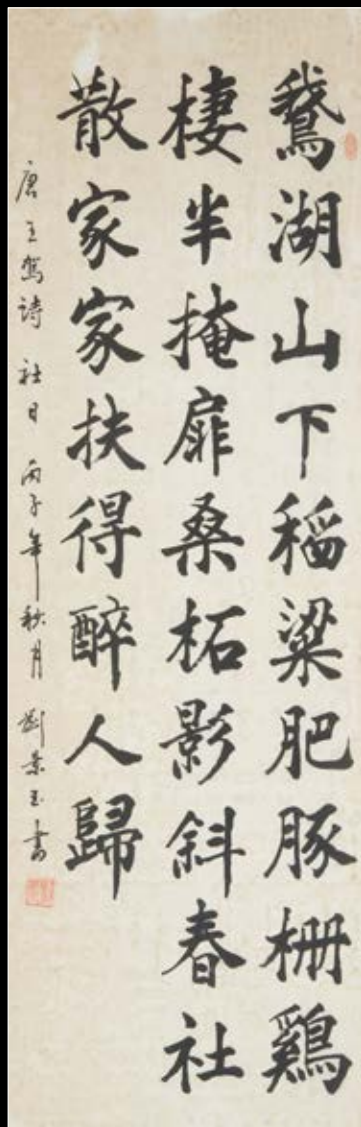 鵝湖山下稻粱肥豚栅鷄
棲半掩扉桑柘影斜春社
散家家扶得醉人歸
唐王駕詩 社日 丙子年秋月 劉景玉書